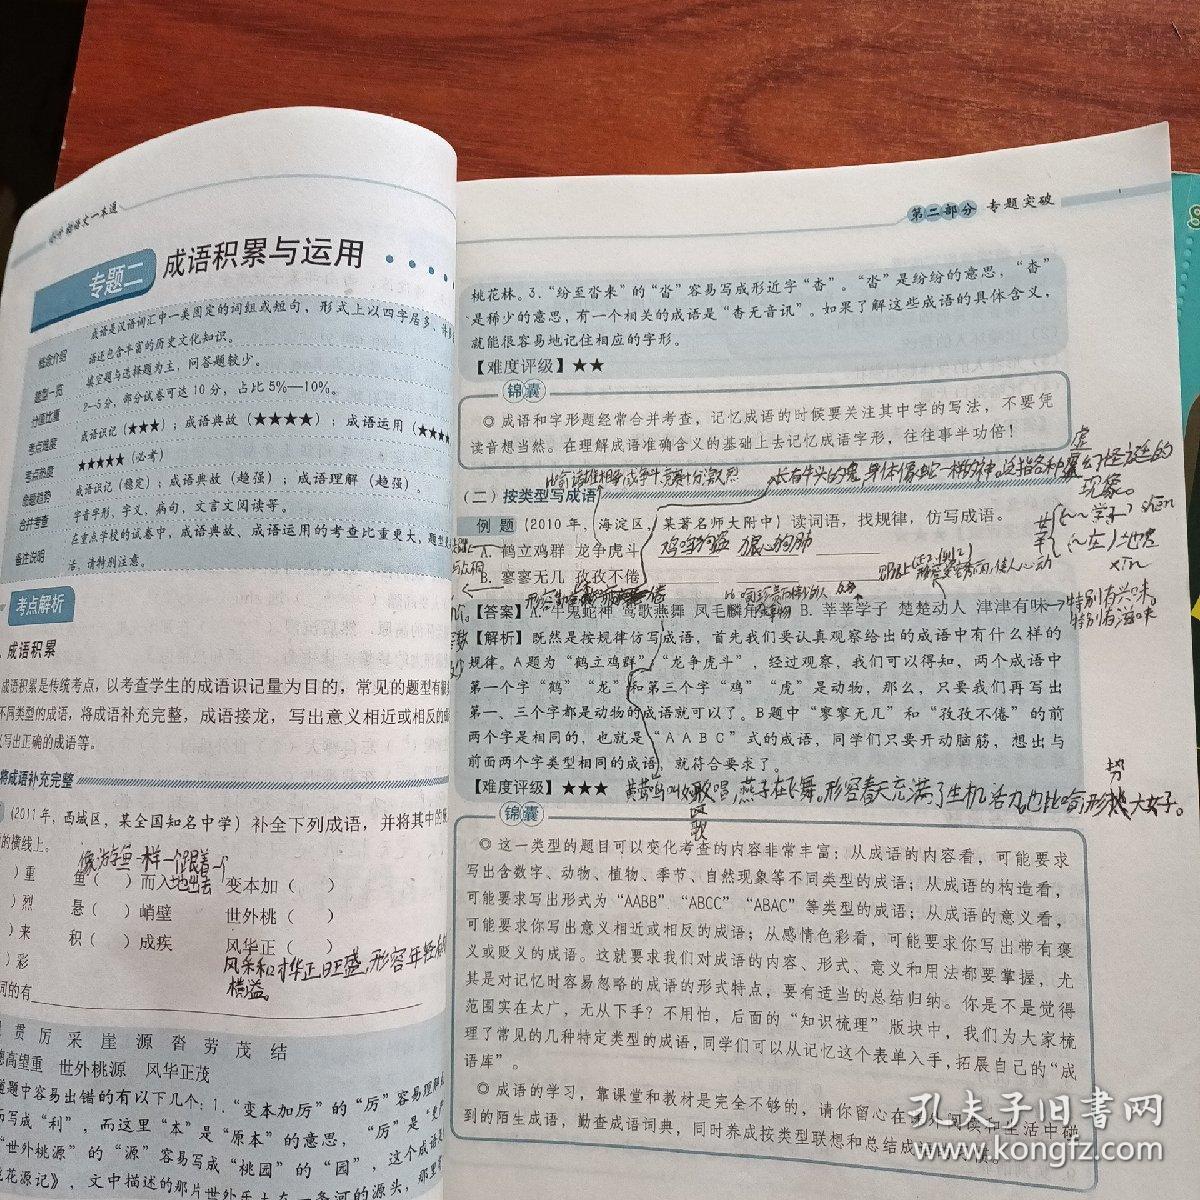 语文一本通
专题二 成语积累与运用
概念介绍
成语是汉语词汇中一类固定的词组或短句，形式上以四字居多、
语还包含丰富的历史文化知识。
题型一览
填空题与选择题为主，问答题较少。
分值比重
2—5分，部分试卷可达10分，占比5%—10%。
考点难度
成语识记（★★★）；成语典故（★★★★）；成语运用（★★★★
考点热度
★★★★★（必考）
命题趋势
成语识记（稳定）；成语典故（趋强）；成语理解（趋强）。
合并考查
字音字形，字义，病句，文言文阅读等。
备注说明
在重点学校的试卷中，成语典故、成语运用的考查比重更大，题型
活，请特别注意。
考点解析
成语积累
成语积累是传统考点，以考查学生的成语识记量为目的，常见的题型有
不同类型的成语，将成语补充完整，成语接龙，写出意义相近或相反的
写出正确的成语等。
将成语补充完整
（2011年，西城区，某全国知名中学）补全下列成语，并将其中的
的横线上。
像游鱼一样一个跟着一个
地出去
）重 鱼（ ）而入 变本加（ ）
）烈 悬（ ）峭壁 世外桃（ ）
）来 积（ ）成疾 风华正（ ）
）彩
风采和才华正旺盛，形容年轻
横溢。
词的有
贯 厉 采 崖 源 沓 劳 茂 结
德高望重 世外桃源 风华正茂
道题中容易出错的有以下几个：1.“变本加厉”的“厉”容易
写成“利”，而这里“本”是“原本”的意思，“厉”是
“世外桃源”的“源”容易写成“桃园”的“园”，这个成语
花源记》，文中描述的那片世外乐土在一条河的源头，那里
第二部分 专题突破
桃花林。3.“纷至沓来”的“沓”容易写成形近字“杳”。“沓”是纷纷的意思，“杳”
是稀少的意思，有一个相关的成语是“杳无音讯”。如果了解这些成语的具体含义，
就能很容易地记住相应的字形。
【难度评级】★★
锦囊
◎ 成语和字形题经常合并考查，记忆成语的时候要关注其中字的写法，不要凭
读音想当然。在理解成语准确含义的基础上去记忆成语字形，往往事半功倍！
现象。
（二）按类型写成语
例题（2010年，海淀区，某著名师大附中）读词语，找规律，仿写成语。
A. 鹤立鸡群 龙争虎斗 狼心狗肺
B. 寥寥无几 孜孜不倦
【答案】A. 牛鬼蛇神 莺歌燕舞 凤毛麟角 B. 莘莘学子 楚楚动人 津津有味
特别有兴味。
特别有滋味
【解析】既然是按规律仿写成语，首先我们要认真观察给出的成语中有什么样的
规律。A题为“鹤立鸡群”“龙争虎斗”，经过观察，我们可以得知，两个成语中
第一个字“鹤”“龙”和第三个字“鸡”“虎”是动物，那么，只要我们再写出
第一、三个字都是动物的成语就可以了。B题中“寥寥无几”和“孜孜不倦”的前
两个字是相同的，也就是“AABC”式的成语，同学们只要开动脑筋，想出与
前面两个字类型相同的成语，就符合要求了。
【难度评级】★★★
燕子在飞舞。形容春天充满了生机活力，也比喻形势大好。
锦囊
◎ 这一类型的题目可以变化考查的内容非常丰富：从成语的内容看，可能要求
写出含数字、动物、植物、季节、自然现象等不同类型的成语；从成语的构造看，
可能要求写出形式为“AABB”“ABCC”“ABAC”等类型的成语；从成语的意义看，
可能要求你写出意义相近或相反的成语；从感情色彩看，可能要求你写出带有褒
义或贬义的成语。这就要求我们对成语的内容、形式、意义和用法都要掌握，尤
其是对记忆时容易忽略的成语的形式特点，要有适当的总结归纳。你是不是觉得
范围实在太广，无从下手？不用怕，后面的“知识梳理”版块中，我们为大家梳
理了常见的几种特定类型的成语，同学们可以从记忆这个表单入手，拓展自己的“成
语库”。
◎ 成语的学习，靠课堂和教材是完全不够的，请你留心在课外阅读和生活中碰
到的陌生成语，勤查成语词典，同时养成按类型联想和总结成语的习惯。
孔夫子旧书网
www.kongfz.com